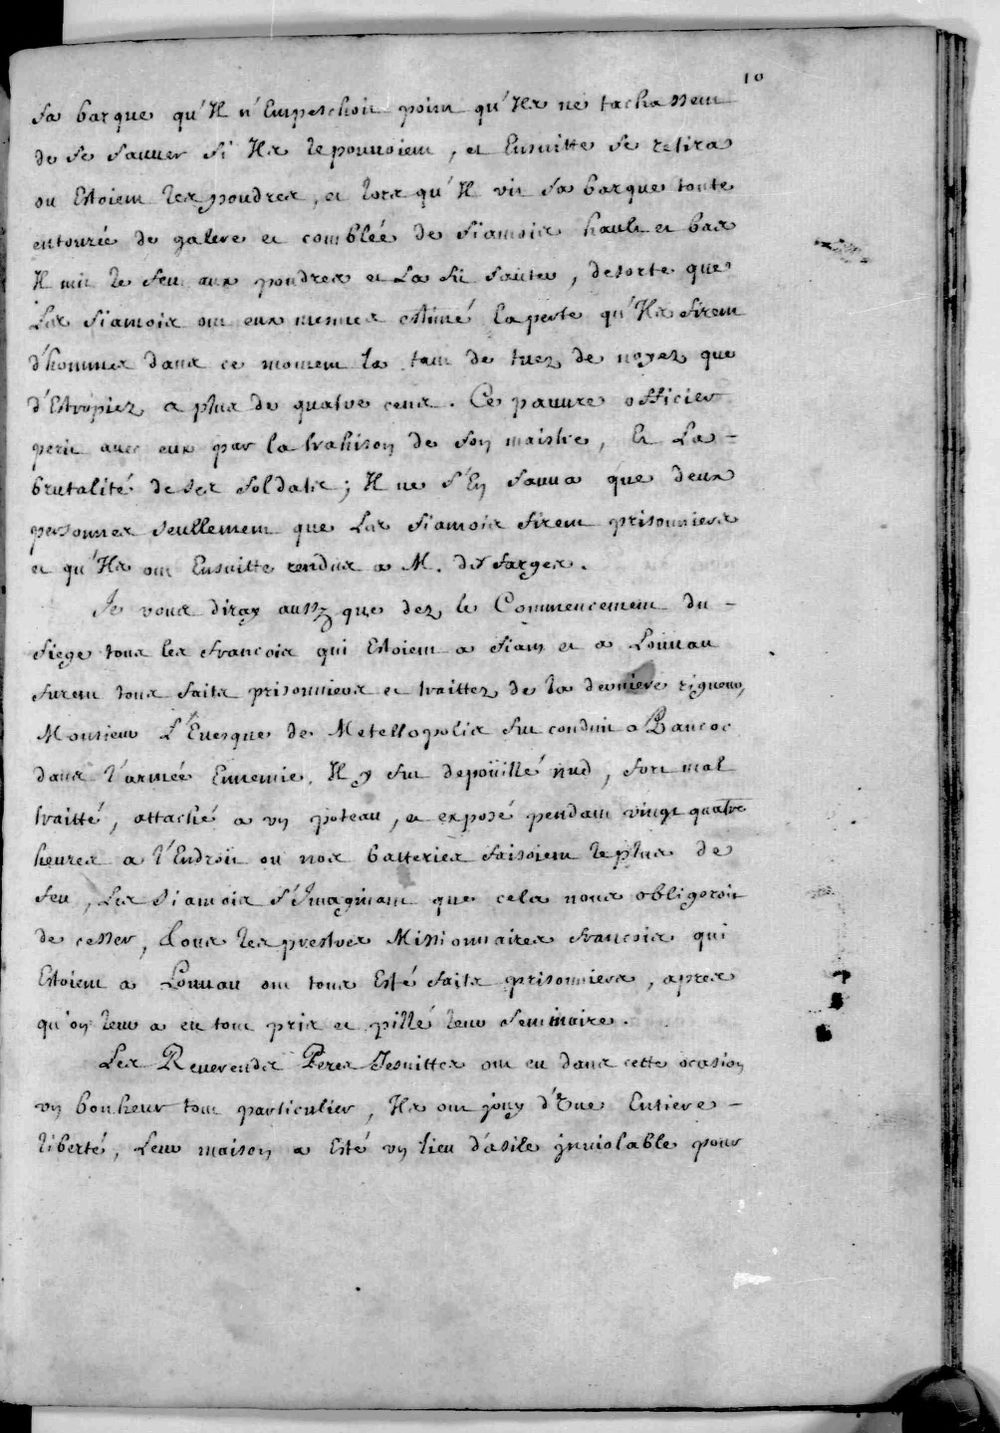 10
sa barque qu'Il n'Empeschoit point qu'Ils ne tachassent
de se sauver si Ils le pouuoient, et Ensuitte se retira
ou Estoient les poudres, et lors qu'Il vit sa barque toute
entourée de galere et comblée de siamois hault et bas
Il mit le feu aux poudres et La fit sauter, desorte que
Les siamois ont eux mesmes estimé la perte qu'Ils firent
d'hommes dans ce moment la tant de tuez de noyez que
d'Estropiez a plus de quatre cens. Ce pauure officier
perit auec eux par la trahison de son maistre, Et La -
brutalité de ses soldats; Il ne s'En sauua que deux
personnes seullement que Les siamois firent prisonniers
et qu'Ils ont Ensuitte rendus a M. des farges.
Je vous diray aussy que dez le Commencement du -
siege tous les francois qui Estoient a siam et a Louuau
furent tous faits prisonniers et traittez de la derniere rigueur,
Monsieur L'Euesque de Metellopolis fut conduit a Bancoc
dans l'armée Ennemie. Il y fut depoüillé nud, fort mal
traitté, attaché a vn poteau, et exposé pendant vingt quatre
heures a l'Endroit ou nos batteries faisoient le plus de
feu, Les siamois s'Imaginant que cela nous obligeroit
de cesser, Tous les prestres Missionnaires francois qui
Estoient a Louuau ont tous Esté faits prisonniers, apres
qu'on leur a eu tout pris et pillé leur seminaire.
Les Reuerends Peres Jesuittes ont eu dans cette ocasion
vn bonheur tout particulier, Ils ont jouy d'Vne Entiere -
liberté, Leur maison a Esté vn lieu d'asile jnuiolable pour